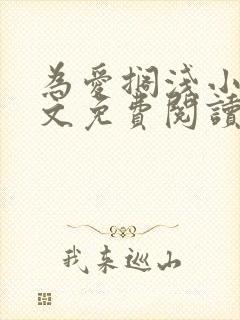 為愛擱淺小
文免費閱讀
我來巡山